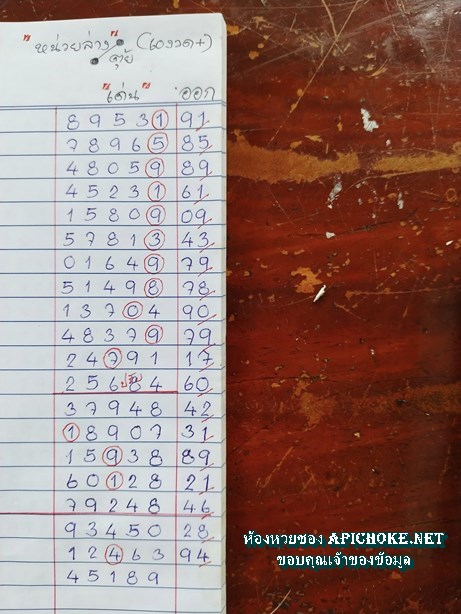 "หน่วยล่าง" (เองวด+)
"เด่น" ออก
8 9 5 3 1 91
7 8 9 6 5 85
4 8 0 5 9 89
4 5 2 3 1 61
1 5 8 0 9 09
5 7 8 1 3 43
0 1 6 4 9 79
5 1 4 9 8 78
1 3 7 0 4 90
4 8 3 7 9 79
2 4 7 9 1 17
2 5 6 8 4 60
3 7 9 4 8 42
1 8 9 0 7 31
1 5 9 3 8 89
6 0 1 2 8 21
7 9 2 4 8 46
9 3 4 5 0 28
1 2 4 6 3 94
4 5 1 8 9
ห้องหวยซอง APICHOKE.NET
ขอบคุณเจ้าของข้อมูล